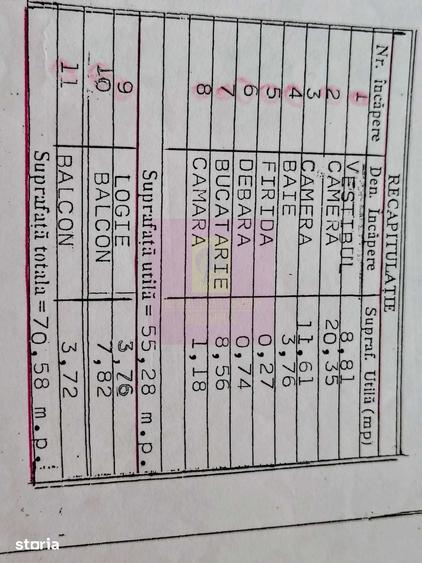 RECAPITULATIE
Nr. încăpere Den. încăpere Supraf. Utilă (mp)
1 VESTIBUL 8,81
2 CAMERA 20,35
3 CAMERA 11,61
4 BAIE 3,76
5 FIRIDA 0,27
6 DEBARA 0,74
7 BUCATARIE 8,56
8 CAMARA 1,18
Suprafaţă utilă = 55,28 m.p.
9 LOGIE 3,76
10 BALCON 7,82
11 BALCON 3,72
Suprafaţă totala = 70,58 m.p.
storia